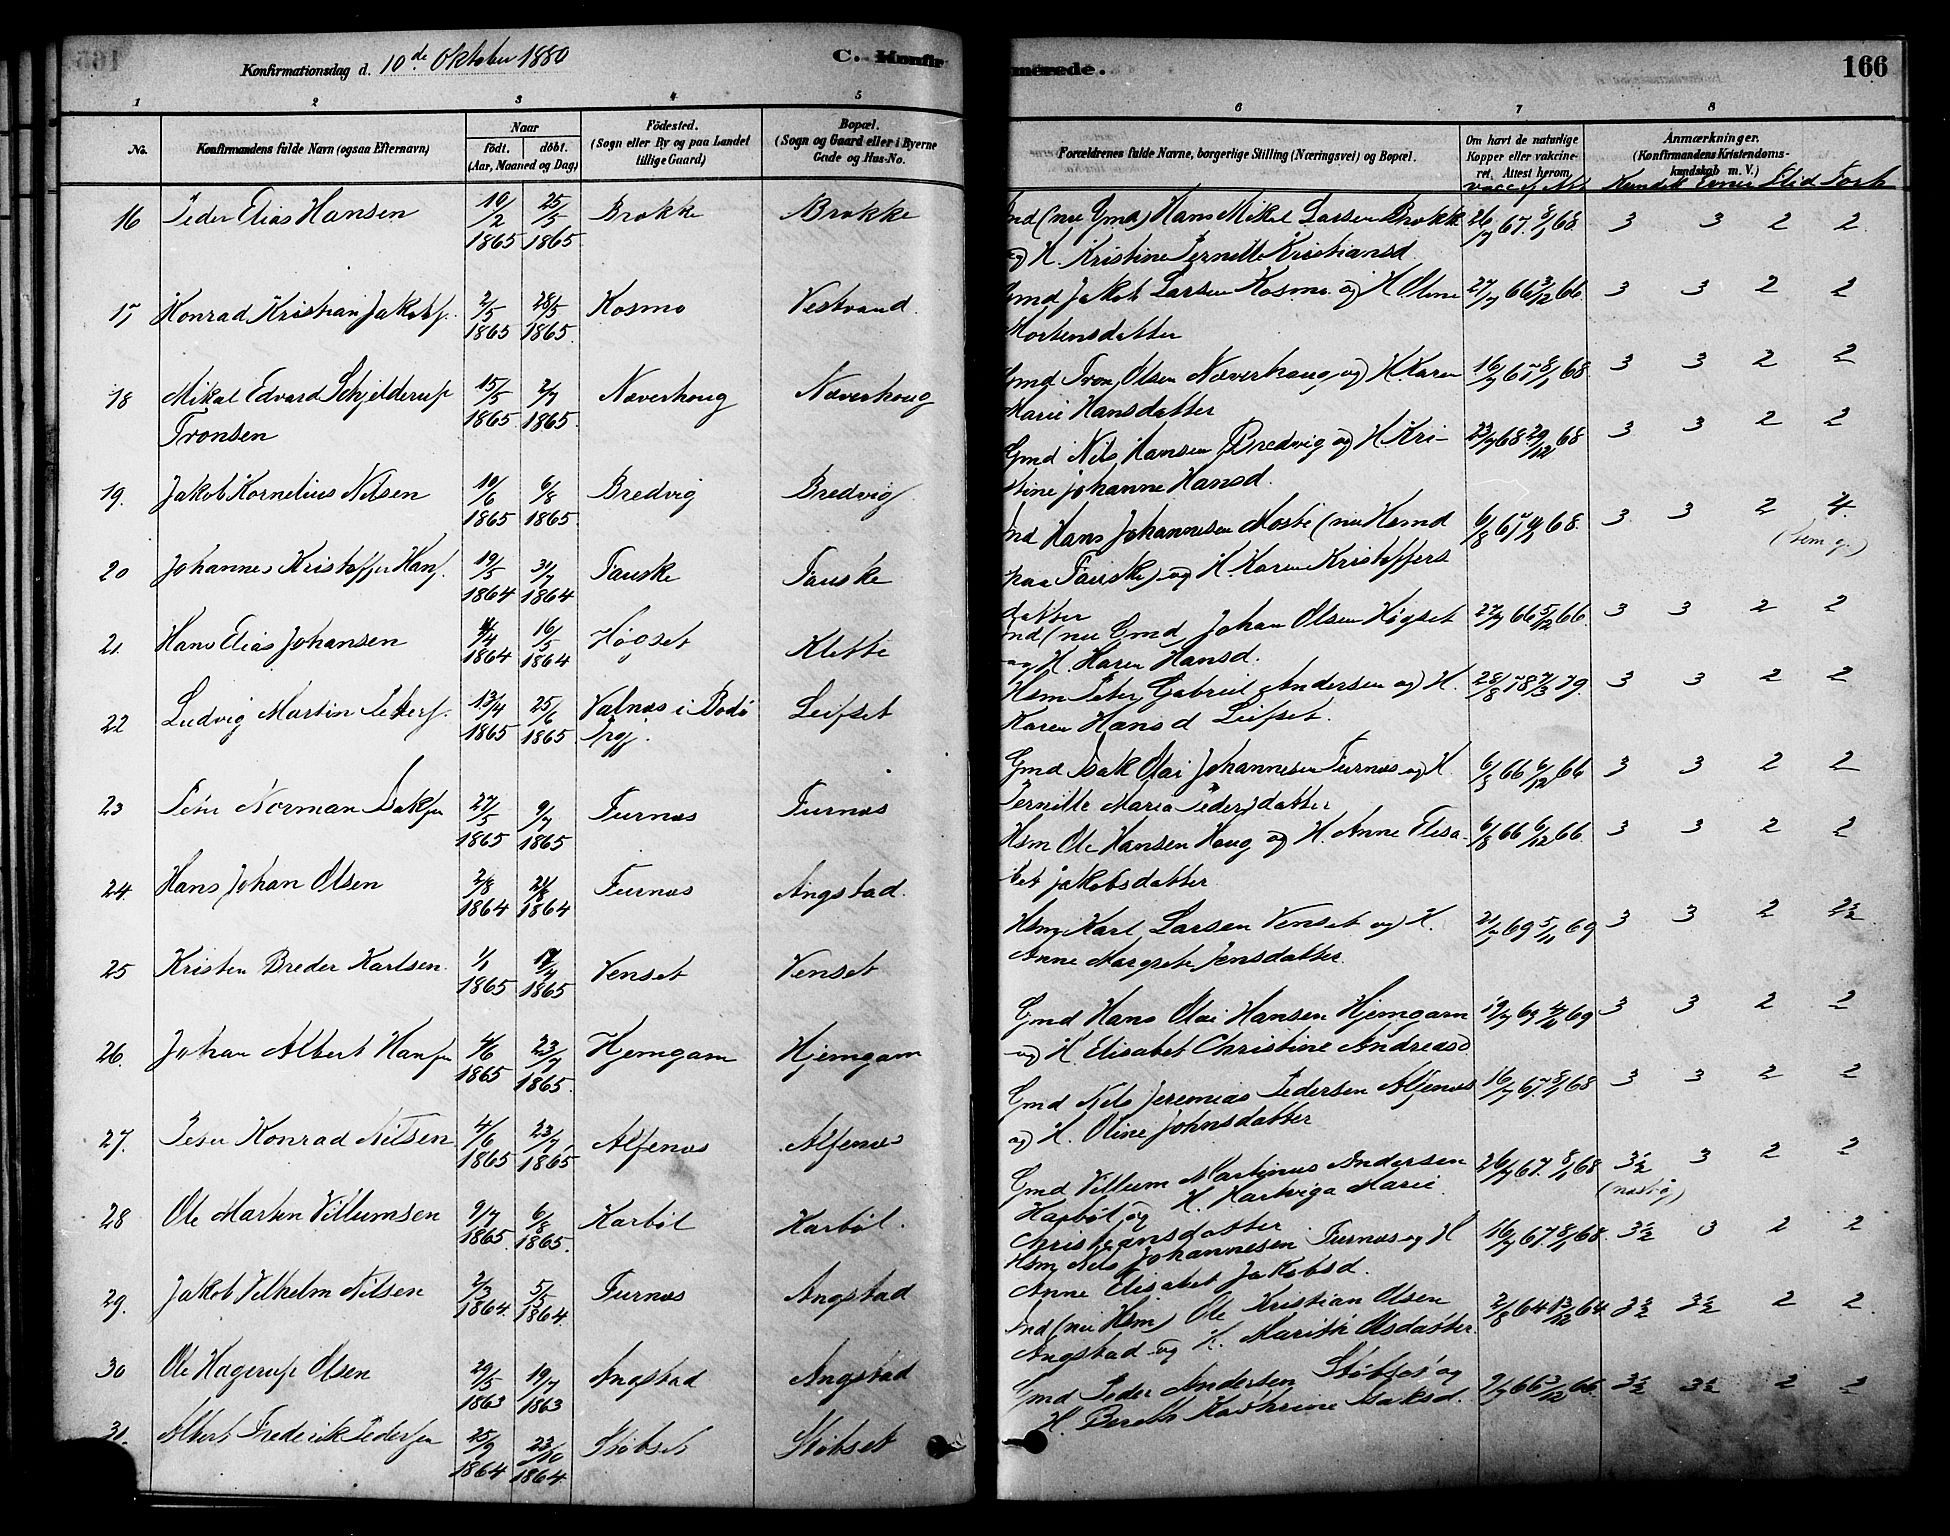 Konfirmationsdag d. 10de Oktober 1880
C. Konfir
merede.
166
1 2 3 4 5 6 7 8
No.
Konfirmandens fulde Navn (ogsaa Efternavn)
Naar
født. døbt.
(Aar, Maaned og Dag)
Födested.
(Sogn eller By og paa Landet
tillige Gaard)
Bopæl.
(Sogn og Gaard eller i Byerne
Gade og Hus-No.
Forældrenes fulde Navne, borgerlige Stilling (Næringsvei) og Bopæl.
Om havt de naturlige
Kopper eller vakcine-
ret. Attest herom.
Anmærkninger.
(Konfirmandens Kristendoms-
kundskab m. V.)
Kundsk Evner Flid Forh
16 Peder Elias Hansen 10/2 1865 25/5 1865 Brokke Brokke
Ind (nu Gmd) Hans Mikal Larsen Brokke 26/7 67. 8/1 68. 3 3 2 2
og H. Kristine Pernille Kristiansd.
17 Konrad Kristian Jakobs. 2/5 1865 28/5 1865 Kosmo Vestvand
Gmd Jakob Larsen Kosmo og H Oline 27/7 66 3/12 66. 3 3 2 2
Mortensdatter
18 Mikal Edvard Schjelderup 15/5 1865 2/7 1865 Næverhoug Næverhoug
Tronsen
Gmd Tron Olsen Næverhoug og H. Karen 16/7 67 8/1 68. 3 3 2 2
Marie Hansdatter
19. Jakob Kornelius Nilsen 10/6 1865 6/8 1865. Bredvig Bredvig
Gmd Nils Hansen Bredvig og H Kri- 23/7 68. 29/12 68 3 3 2 2
stine Johanne Hansd.
20 Johannes Kristoffer Hans. 19/5 1864 31/7 1864 Fauske Fauske
Ind Hans Johannesen Moste (nu Hsmd 3 3 2 4.
paa Fauske) og H. Karen Kristoffers
datter
21. Hans Elias Johansen 4/4 1864 16/5 1864 Høgset Klette
Ind (nu Gmd Johan Olsen Høgset 27/7 66 5/12 66. 3 3 2 2
og H. Karen Hansd.
22 Ludvig Martin Peters. 13/4 1865 25/6 1865 Valnæs i Bodø Leifset
Hsm Peter Gabriel Andersen og H. 28/8 78 7/3 79. 3 3 2 2
Karen Hansd Leifset.
23 Peter Norman Isaksen 27/5 1865 9/7 1865 Furnæs Furnæs
Gmd Isak Olai Johannesen Furnæs og H. 6/8 66 6/12 66 3 3 2 2
Pernille Maria Pedersdatter
24. Hans Johan Olsen 2/8 1864 21/8 1864 Furnæs Angstad.
Hsm Ole Hansen Haug og H. Anne Elisa- 6/8 66 6/12 66. 3 3 2 2
bet Jakobsdatter
25 Kristen Breder Karlsen. 1/1 1865 17/4 1865 Venset Venset
Hsm Karl Larsen Venset og H. 21/7 69 5/11 69 3 3 2 2½
Anne Margrete Jensdatter.
26. Johan Albert Hansen 4/6 1865 23/7 1865. Hjemgam Hjemgam
Gmd Hans Olai Hansen Hjemgam 3 3 2 2
og H Elisabet Christine Andreasd
27. Peter Konrad Nilsen 4/6 1865 23/7 1865 Alfenæs Alfenæs
Gmd Nils Jeremias Pedersen Alfenæs 16/7 67. 8/1 68 3 3 2 2
og H. Oline Johnsdatter
28 Ole Martin Villumsen 9/7 1865. 6/8 1865. Karbøl Karbøl.
Gmd Villum Martinus Andersen 26/7 67. 8/1 68 3½ 3 2 2
Karbøl og H. Hartviga Marie
Christiansdatter
29. Jakob Vilhelm Nilsen 2/3 1864. 5/5 1864. Furnæs Angstad
Hsm Nils Johannesen Furnæs og H 16/7 67. 8/1 68. 3½ 3 2 2
Anne Elisabet Jakobsd.
30 Ole Hagerup Olsen 29/5 1863 19/7 1863 Angstad Angstad
Ind (nu Hsm) Ole Kristian Olsen 2/8 64 13/12 64. 3½ 3½ 2 2.
Angstad og H. Marith Olsdatter.
31. Albert Frederik Pedersen 25/9 1864 23/10 1864. Støbset Støbset
Gmd Peder Andersen Støbset og 3½ 3½ 2 2
H. Bereth Kathrine Isaksd.